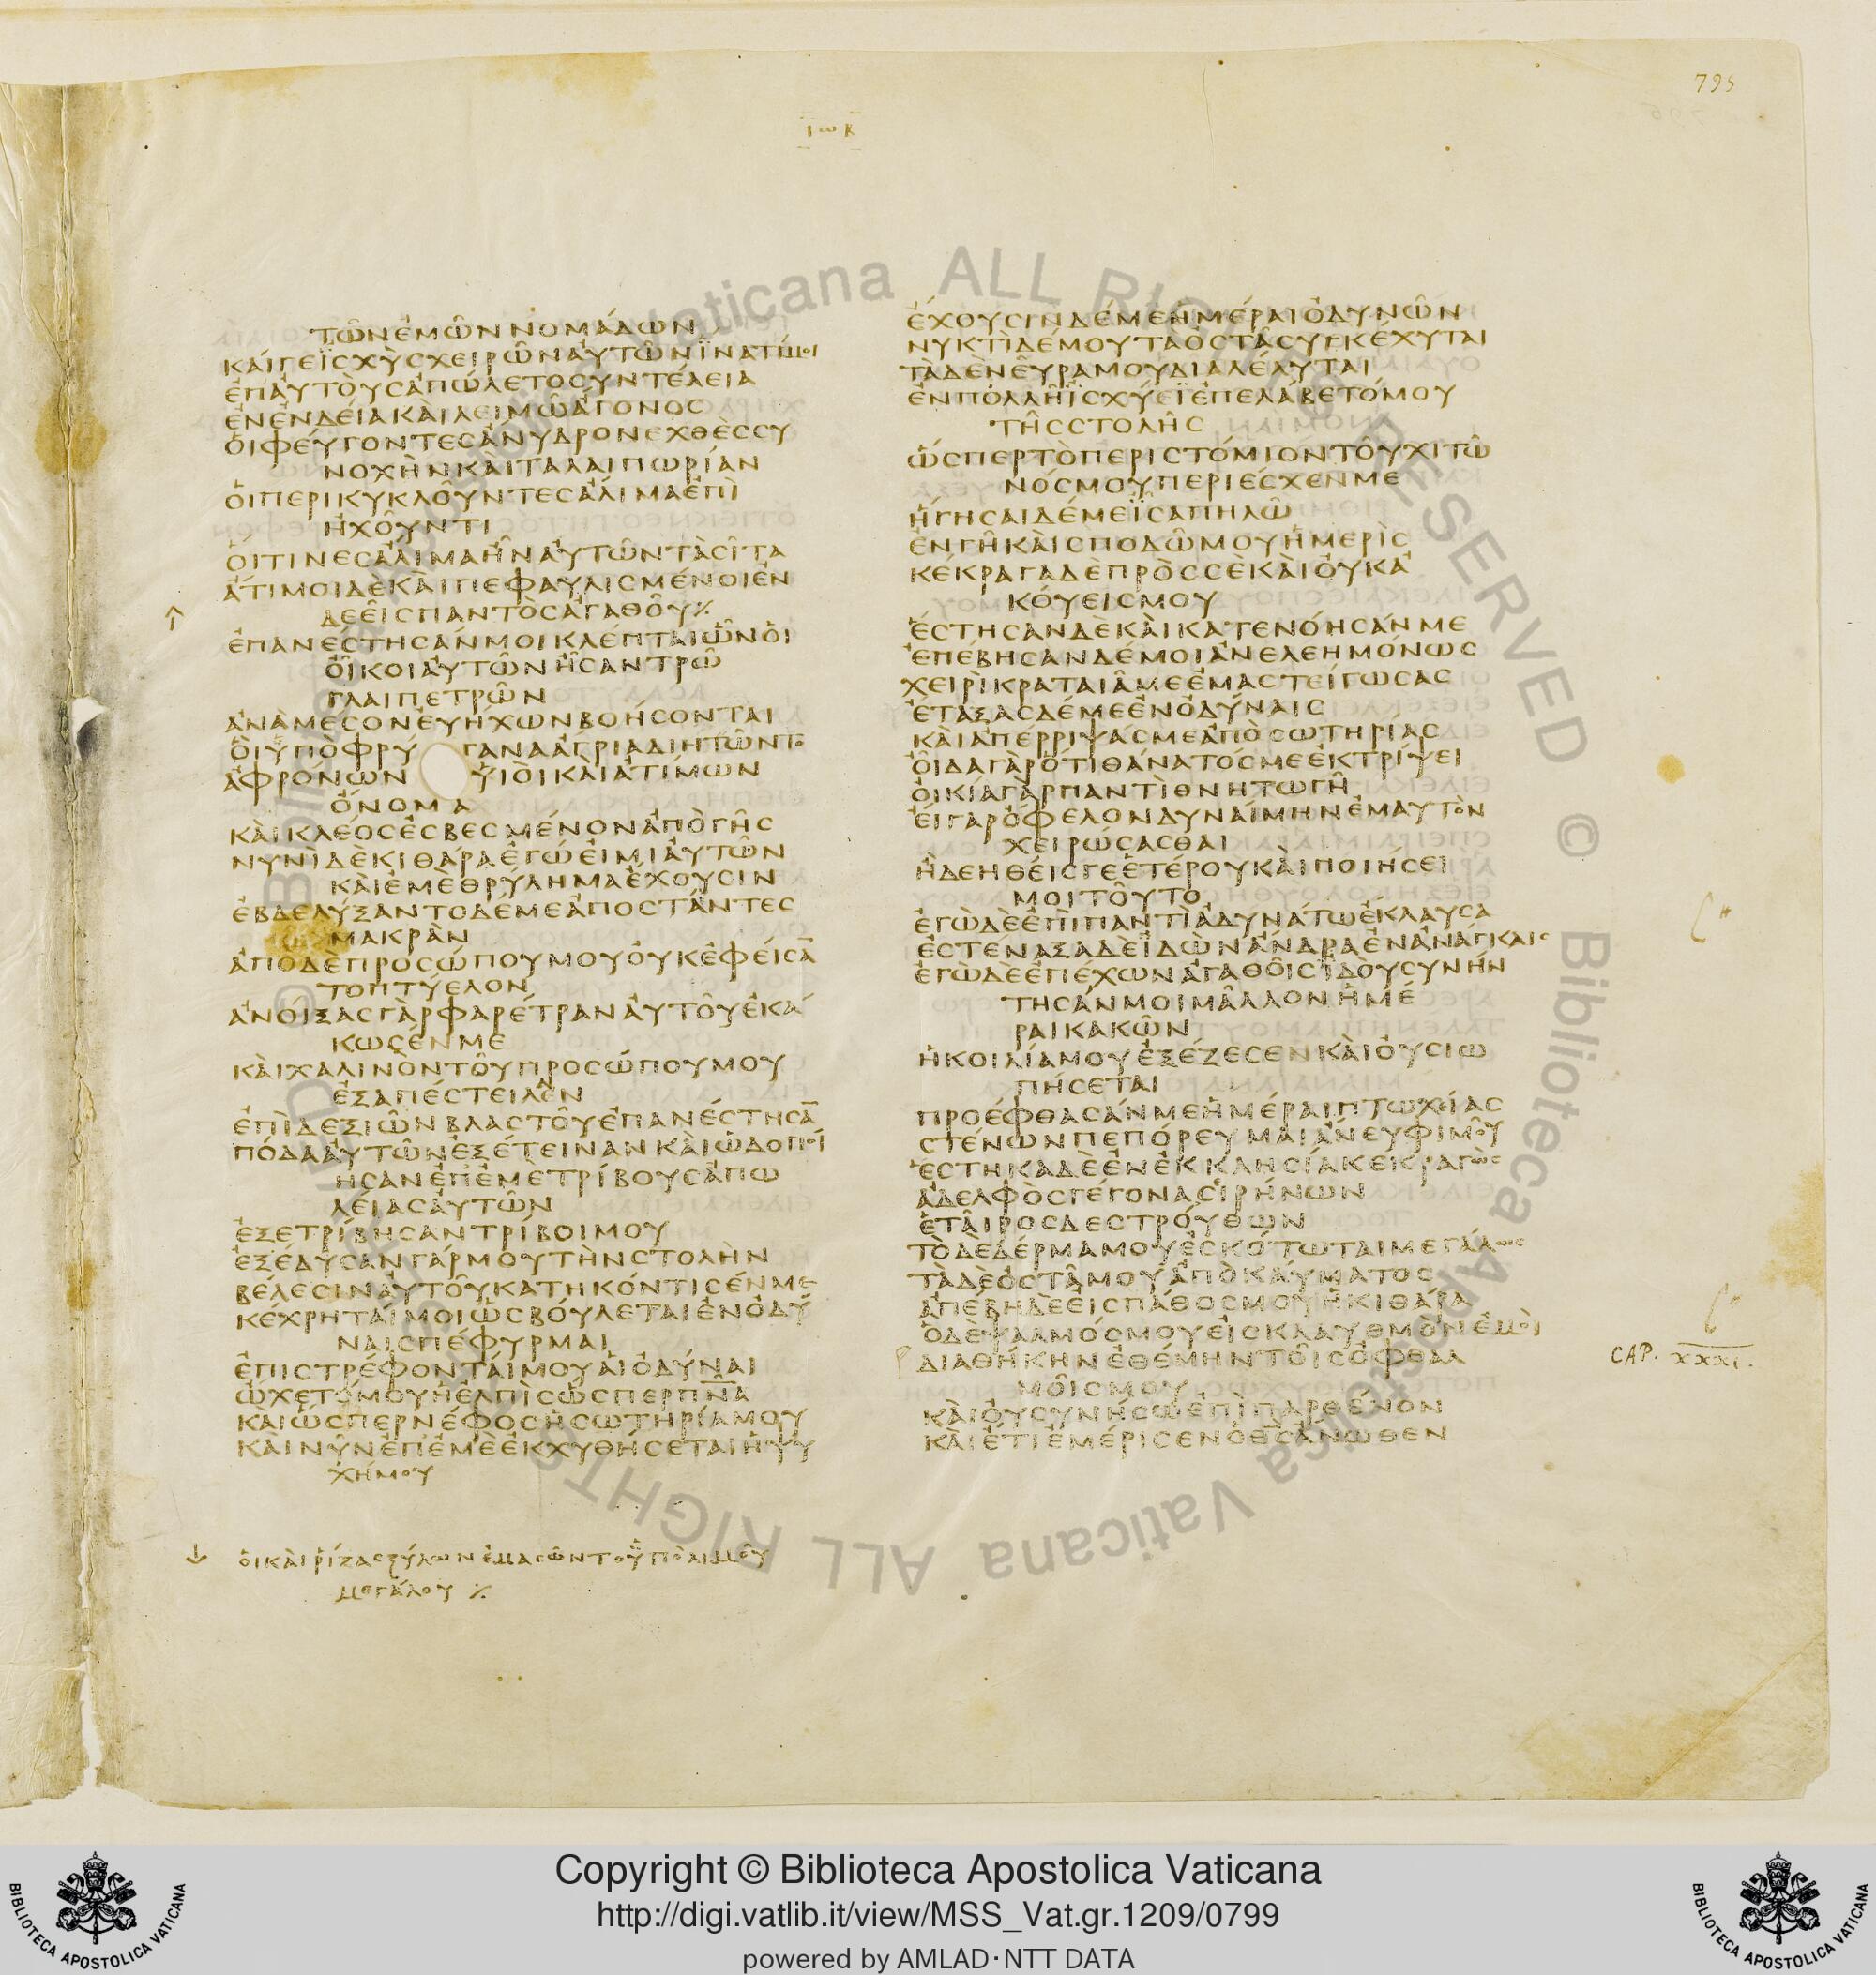 795
ΙΩΒ
ΤῶΝἐΜῶΝΝΟΜάΔΩΝ
ΚΑίΓΕΪΣΧὺΣΧΕΙΡῶΝΑὐΤῶΝΪΝΑΤΙΜΟΙ
ἐΠΑὐΤΟὺΣἀΠώΛΕΤΟΣΥΝΤέΛΕΙΑ
ἐΝἐΝΔΕίΑΚΑὶΛΕΙΜῶἄΓΟΝΟΣ
ὁΙΦΕύΓΟΝΤΕΣἄΝΥΔΡΟΝΕΧΘὲΣΣΥ
ΝΟΧὴΝΚΑὶΤΑΛΑΙΠΩΡίΑΝ
ὁΙΠΕΡΙΚΥΚΛΟῦΝΤΕΣἄΛΙΜΑἐΠὶ
ἠΧΟῦΝΤΙ
ὁΙΤΙΝΕΣἄΛΙΜΑἦΝΑὐΤῶΝΤὰΣῖΤΑ
ἄΤΙΜΟΙΔὲΚΑὶΠΕΦΑΥΛΙΣΜέΝΟΙἐΝ
ΔΕΕῖΣΠΑΝΤὸΣἀΓΑΘΟῦ⁒
ἐΠΑΝέΣΤΗΣάΝΜΟΙΚΛέΠΤΑΙὧΝὁΙ
ΟἶΚΟΙΑὐΤῶΝἦΣΑΝΤΡῶ
ΓΛΑΙΠΕΤΡῶΝ
ἀΝὰΜΕΣΟΝΕὐΗΧΩΝΒΟήΣΟΝΤΑΙ
ὁΙὑΠὸΦΡύΓΑΝΑἄΓΡΙΑΔΙΗΤῶΝΤΟ
ἀΦΡόΝΩΝὑΙΟὶΚΑὶἀΤίΜΩΝ
ὄΝΟΜΑ
ΚΑὶΚΛέΟΣἐΣΒΕΣΜέΝΟΝἀΠὸΓῆΣ
ΝΥΝὶΔὲΚΙΘάΡΑἐΓώΕἰΜΙΑὐΤῶΝ
ΚΑὶἐΜὲΘΡύΛΗΜΑἔΧΟΥΣΙΝ
ἐΒΔΕΛύΞΑΝΤΟΔέΜΕἀΠΟΣΤάΝΤΕΣ
ΜΑΚΡὰΝ
ἀΠΟΔὲΠΡΟΣώΠΟΥΜΟΥΟὐΚἐΦΕίΣᾹ
ΤΟΠΤύΕΛΟΝ
ἀΝΟίΞΑΣΓὰΡΦΑΡέΤΡΑΝΑὐΤΟῦἐΚά
ΚΩΣέΝΜΕ
ΚΑὶΧΑΛΙΝὸΝΤΟῦΠΡΟΣώΠΟΥΜΟΥ
ἐΞΑΠέΣΤΕΙΛΟΝ
ἐΠὶΔΕΞΙῶΝΒΛΑΣΤΟῦἐΠΑΝέΣΤΗΣᾹ
ΠόΔΑΑὐΤῶΝἐΞέΤΕΙΝΑΝΚΑὶὡΔΟΠΟί
ΗΣΑΝἐΠἐΜὲΤΡίΒΟΥΣἀΠΩ
ΛΕίΑΣΑὐΤῶΝ
ἐΞΕΤΡίΒΗΣΑΝΤΡίΒΟΙΜΟΥ
ἐΞέΔΥΣΑΝΓάΡΜΟΥΤὴΝΣΤΟΛὴΝ
ΒέΛΕΣΙΝΑὐΤΟῦΚΑΤΗΚόΝΤΙΣέΝΜΕ
ΚέΧΡΗΤΑίΜΟΙὡΣΒόΥΛΕΤΑΙἐΝὀΔύ
ΝΑΙΣΠέΦΥΡΜΑΙ
ἐΠΙΣΤΡέΦΟΝΤΑίΜΟΥΑἱὀΔύΝΑΙ
ᾤΧΕΤόΜΟΥἡἐΛΠὶΣὥΣΠΕΡΠΝ̄Α
ΚΑΙὥΣΠΕΡΝέΦΟΣἡΣΩΤΗΡίΑΜΟΥ
ΚΑὶΝῦΝἐΠἐΜὲἐΚΧΥΘήΣΕΤΑΙἡΨΥ
ΧήΜΟΥ
ὁΙΚΑὶῥίΖΑΣΞύΛΩΝἐΜΑΣῶΝΤΟὑΠὸΛΙΜΟῦ
ΜΕΓάΛΟΥ⁒
ἔΧΟΥΣΙΝΔέΜΕἡΜέΡΑΙὀΔΥΝῶΝ
ΝΥΚΤὶΔέΜΟΥΤΑὀΣΤᾶΣΥΓΚέΧΥΤΑΙ
ΤὰΔὲΝΕῦΡΑΜΟΥΔΙΑΛέΛΥΤΑΙ
ἐΝΠΟΛΛῆΪΣΧύΕΪἐΠΕΛάΒΕΤόΜΟΥ
ΤῆΣΣΤΟΛῆΣ
ὥΣΠΕΡΤὸΠΕΡΙΣΤόΜΙΟΝΤΟῦΧΙΤῶ
ΝόΣΜΟΥΠΕΡΙέΣΧΕΝΜΕ
ἥΓΗΣΑΙΔέΜΕΪΣΑΠΗΛῶ
ἐΝΓῆΚΑὶΣΠΟΔῶΜΟΥἡΜΕΡὶΣ
ΚέΚΡΑΓΑΔὲΠΡὸΣΣὲΚΑὶΟὐΚἀ
ΚόΥΕΙΣΜΟΥ
ἔΣΤΗΣΑΝΔὲΚΑὶΚΑΤΕΝόΗΣάΝΜΕ
ἐΠέΒΗΣΑΝΔέΜΟΙἀΝΕΛΕΗΜόΝΩΣ
ΧΕΙΡὶΚΡΑΤΑΙᾶΜΕἐΜΑΣΤΕίΓΩΣΑΣ
ἔΤΑΞΑΣΔέΜΕἐΝὀΔύΝΑΙΣ
ΚΑὶἀΠέΡΡΙΨάΣΜΕἀΠὸΣΩΤΗΡίΑΣ
ΟἶΔΑΓὰΡὅΤΙΘάΝΑΤόΣΜΕἐΚΤΡίΨΕΙ
ΟἰΚΙΑΓὰΡΠΑΝΤὶΘΝΗΤΩΓῆ
ΕἰΓΑΡὄΦΕΛΟΝΔΥΝΑίΜΗΝἐΜΑΥΤὸΝ
ΧΕΙΡώΣΑΣΘΑΙ
ἢΔΕΗΘΕίΣΓΕἑΤέΡΟΥΚΑὶΠΟΙήΣΕΙ
ΜΟΙΤΟῦΤΟ
ἐΓὼΔὲἐΠὶΠΑΝΤὶἀΔΥΝάΤΩἔΚΛΑΥΣΑ
ἐΣΤέΝΑΞΑΔΕΪΔὼΝἄΝΔΡΑἐΝἀΝάΓΚΑΙΣ
ἐΓὼΔὲἐΠέΧΩΝἀΓΑΘΟῖΣΪΔΟὺΣΥΝήΝ
ΤΗΣάΝΜΟΙΜᾶΛΛΟΝἡΜέ
ΡΑΙΚΑΚῶΝ
ἡΚΟΙΛίΑΜΟΥἐΞέΖΕΣΕΝΚΑὶΟὐΣΙΩ
ΠήΣΕΤΑΙ
ΠΡΟέΦΘΑΣάΝΜΕἡΜέΡΑΙΠΤΩΧΕίΑΣ
ΣΤέΝΩΝΠΕΠόΡΕΥΜΑΙἄΝΕΥΦΙΜΟῦ
ἕΣΤΗΚΑΔὲἐΝἐΚΚΛΗΣίΑΚΕΚΡΑΓὼΣ
ἀΔΕΛΦὸΣΓέΓΟΝΑΣΙΡήΝΩΝ
ἑΤΑῖΡΟΣΔΕΣΤΡόΥΘΩΝ
ΤὸΔὲΔέΡΜΑΜΟΥἐΣΚόΤΩΤΑΙΜΕΓάΛΩΣ
ΤὰΔὲὀΣΤᾶΜΟΥἀΠὸΚΑύΜΑΤΟΣ
ἀΠέΒΗΔὲΕἰΣΠάΘΟΣΜΟΥἡΚΙΘάΡΑ
ὁΔὲΨΑΛΜόΣΜΟΥΕἰΣΚΛΑΥΘΜὸΝἐΜΟὶ
ΔΙΑΘήΚΗΝἐΘέΜΗΝΤΟῖΣὀΦΘΑΛ
ΜΟῖΣΜΟΥ
ΚΑὶΟὐΣΥΝήΣΩἐΠὶΠΑΡΘέΝΟΝ
ΚΑὶἔΤΙἐΜέΡΙΣΕΝὁΘ̄Σ̄ἄΝΩΘΕΝ
CAP. XXXI.
Copyright © Biblioteca Apostolica Vaticana
http://digi.vatlib.it/view/MSS_Vat.gr.1209/0799
powered by AMLAD·NTT DATA
BIBLIOTECA APOSTOLICA VATICANA
BIBLIOTECA APOSTOLICA VATICANA
© Biblioteca Apostolica Vaticana ALL RIGHTS RESERVED © Biblioteca Apostolica Vaticana ALL RIGHTS RESERVED